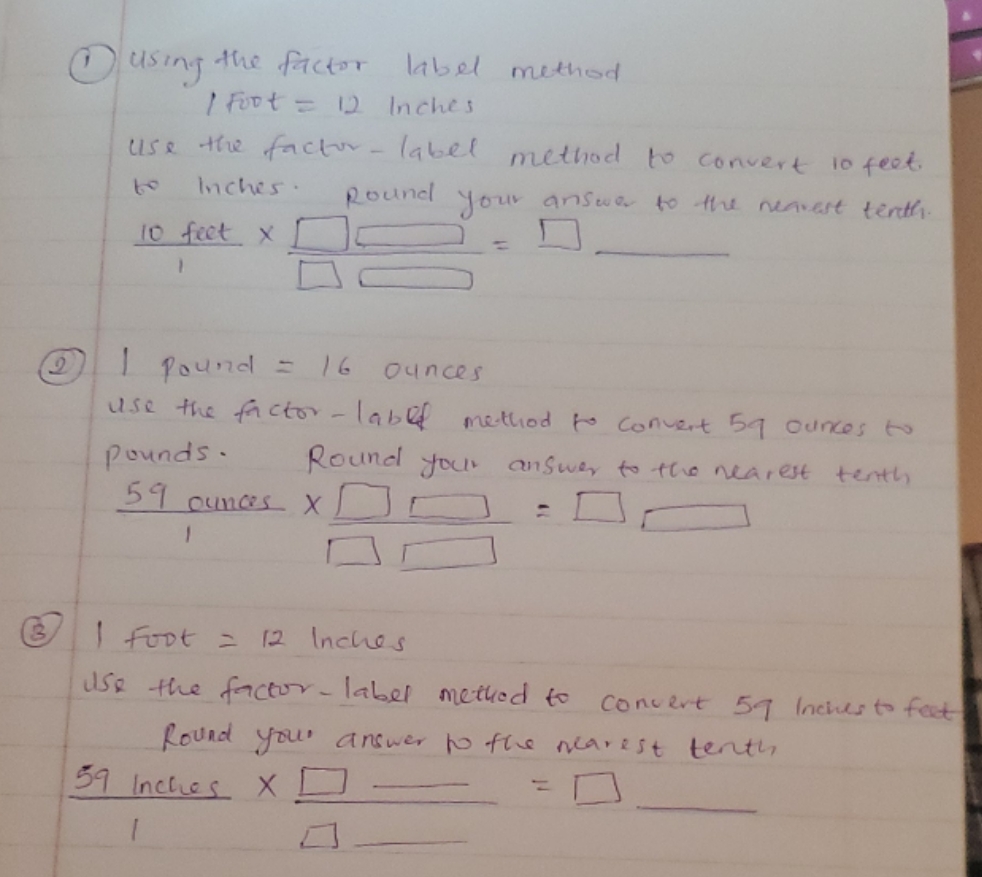 ① Using the factor label method
1 Foot = 12 Inches
Use the factor-label method to convert 10 feet.
to Inches. Round your answer to the nearest tenth.
10 feet × =
1
② 1 Pound = 16 ounces
use the factor-label method to convert 59 ounces to
pounds. Round your answer to the nearest tenth
59 ounces × =
1
③ 1 Foot = 12 Inches
Use the factor-label method to convert 59 Inches to feet
Round your answer to the nearest tenth
59 Inches × =
1